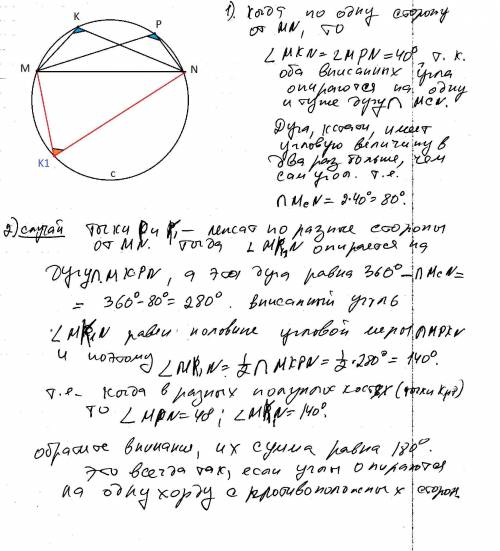 K
P
M
N
K1
c
1). Когда по одну сторону
от MN, то
∠MKN = ∠MPN = 40° т. к.
оба вписанных угла
опираются на одну
и ту же дугу ∩ McN.
Дуга, кстати, имеет
угловую величину в
два раз больше, чем
сам угол. т.е.
∩ McN = 2·40° = 80°.
2) случай точки P и K₁ – лежат по разные стороны
от MN. Тогда ∠MK₁N опирается на
дугу ∩ MKPN, а эта дуга равна 360° – ∩ McN =
= 360° - 80° = 280°. вписанный угль
∠MK₁N равен половине угловой меры ∩ MPKN
и поэтому ∠MK₁N = ½ ∩ MKPN = ½·280° = 140°.
т.е. когда в разных полуплоскостях (точки K и P)
то ∠MPN = 40°; ∠MK₁N = 140°.
обратите внимание, их сумма равна 180°.
Это всегда так, если углы опираются
на одну хорду с противоположных сторон